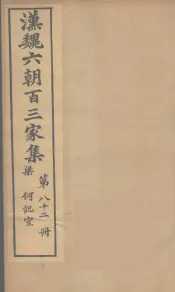 漢魏六朝百三家集
梁 何記室
第八十二冊